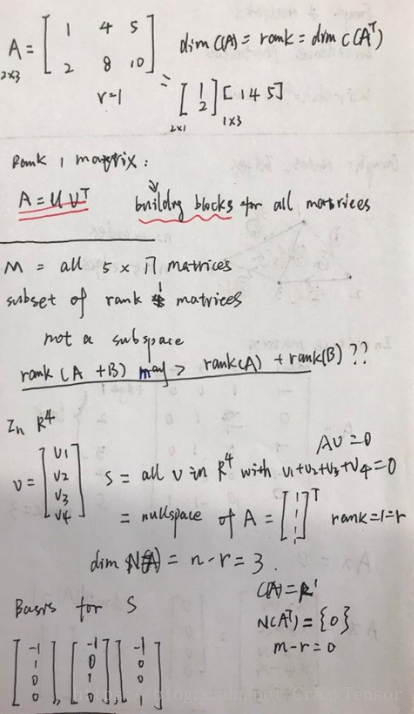 A = [1 4 5; 2 8 10] dim C(A) = rank = dim C(Aᵀ)
2×3
r=1
= [1; 2] [1 4 5]
2×1 1×3
Rank 1 matrix:
A = U Vᵀ building blocks for all matrices
M = all 5 × 17 matrices
subset of rank 4 matrices
not a subspace
rank (A + B) may > rank(A) + rank(B) ??
In R⁴
AV = 0
v = [v1; v2; v3; v4] S = all v in R⁴ with v1+v2+v3+v4=0
= nullspace of A = [1; 1; 1; 1]ᵀ rank=1=r
dim N(A) = n-r = 3.
C(A) = R¹
Basis for S
N(Aᵀ) = {0}
m-r=0
[-1; 1; 0; 0], [-1; 0; 1; 0], [-1; 0; 0; 1]